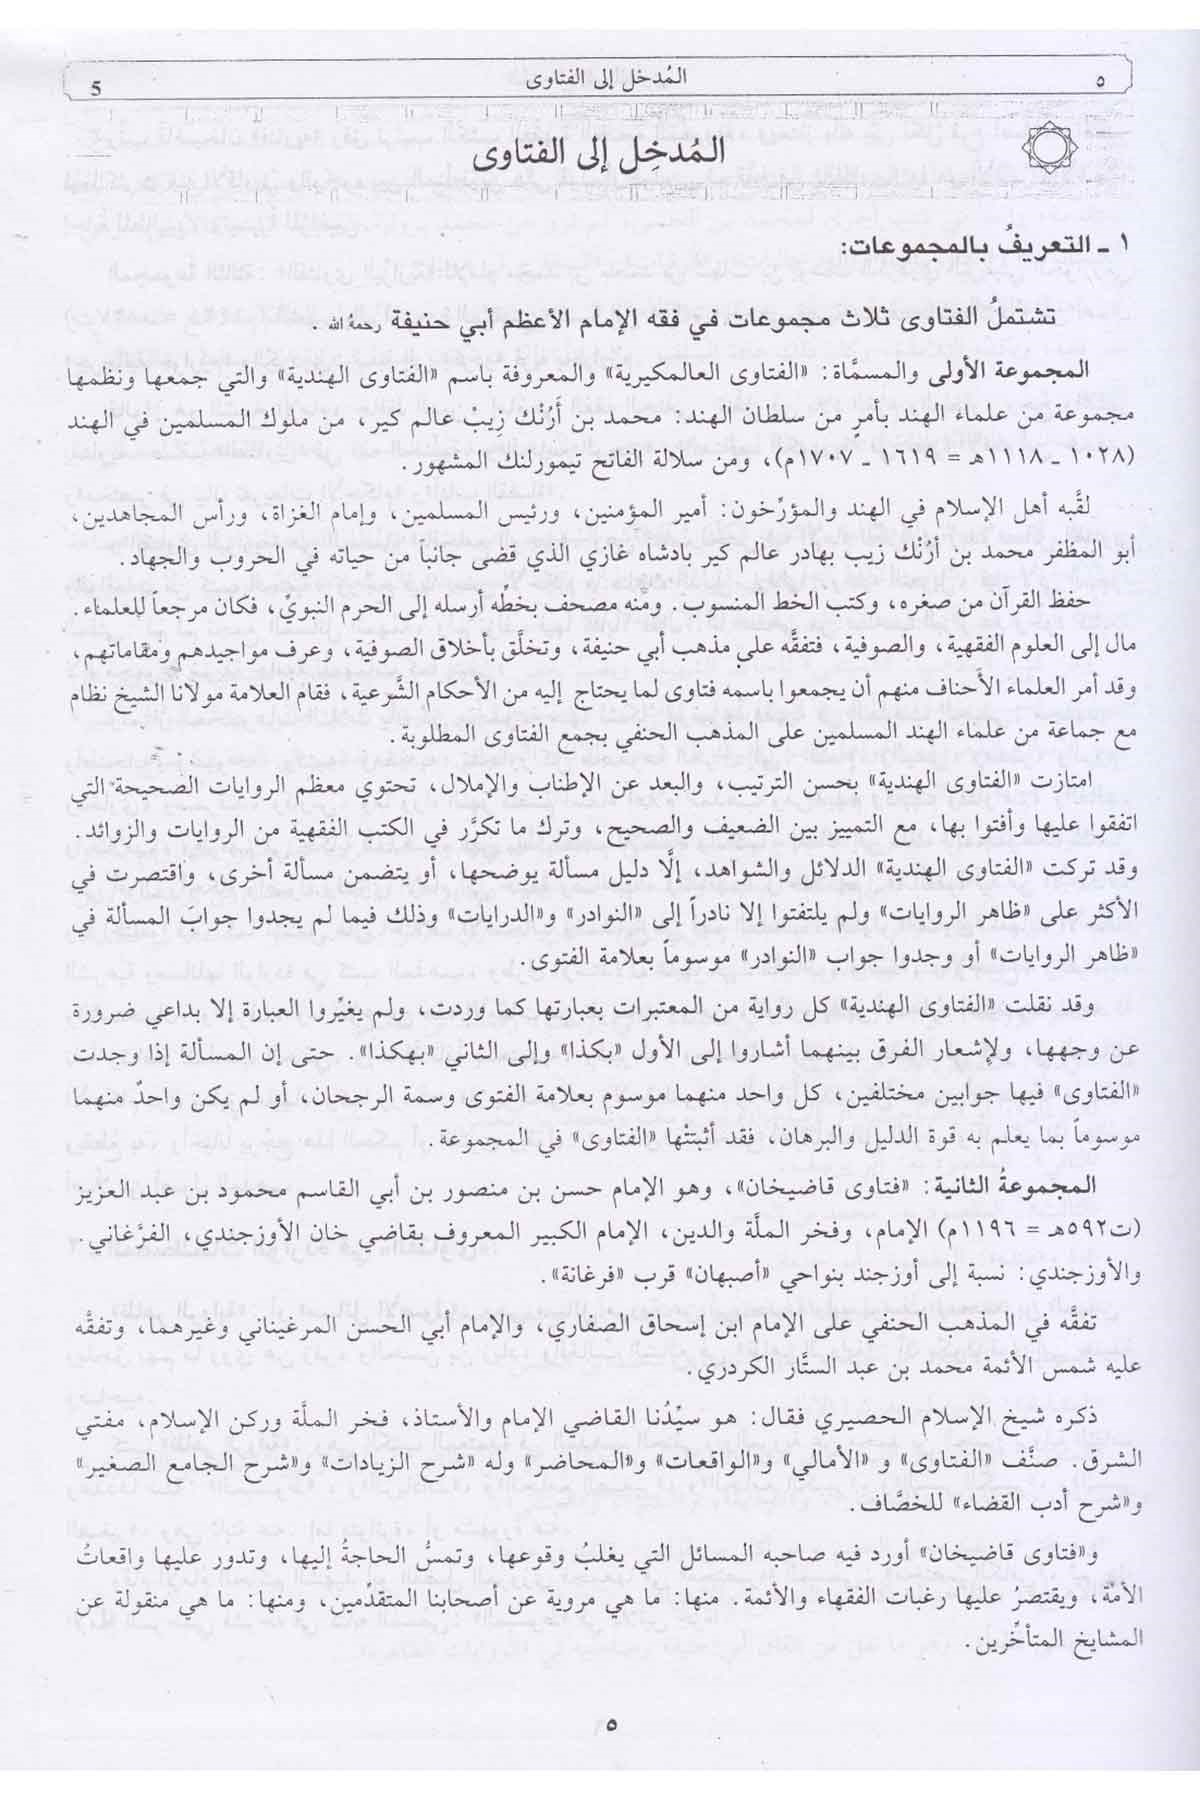 ٥ المُدخل إلى الفتاوى 5
المُدخِل إلى الفتاوى
١ ـ التعريفُ بالمجموعات:
تشتملُ الفتاوى ثلاث مجموعات في فقه الإمام الأعظم أبي حنيفة رحمهُ الله .
المجموعة الأولى والمسمَّاة: «الفتاوى العالمكيرية» والمعروفة باسم «الفتاوى الهندية» والتي جمعها ونظمها
مجموعة من علماء الهند بأمرٍ من سلطان الهند: محمد بن أَرُنْك زِيبْ عالم كير، من ملوك المسلمين في الهند
(١٠٢٨ ـ ١١١٨هـ = ١٦١٩ ـ ١٧٠٧م)، ومن سلالة الفاتح تيمورلنك المشهور.
لقَّبه أهل الإسلام في الهند والمؤرِّخون: أمير المؤمنين، ورئيس المسلمين، وإمام الغزاة، ورأس المجاهدين،
أبو المظفر محمد بن أرُنْك زيب بهادر عالم كير بادشاه غازي الذي قضى جانباً من حياته في الحروب والجهاد.
حفظ القرآن من صغره، وكتب الخط المنسوب. ومنه مصحف بخطِّه أرسله إلى الحرم النبويّ، فكان مرجعاً للعلماء.
مال إلى العلوم الفقهية، والصوفية، فتفقَّه على مذهب أبي حنيفة، وتخلَّق بأخلاق الصوفية، وعرف مواجيدهم ومقاماتهم،
وقد أمر العلماء الأحناف منهم أن يجمعوا باسمه فتاوى لما يحتاج إليه من الأحكام الشَّرعية، فقام العلامة مولانا الشيخ نظام
مع جماعة من علماء الهند المسلمين على المذهب الحنفي بجمع الفتاوى المطلوبة.
امتازت «الفتاوى الهندية» بحسن الترتيب، والبعد عن الإطناب والإملال، تحتوي معظم الروايات الصحيحة التي
اتفقوا عليها وأفتوا بها، مع التمييز بين الضعيف والصحيح، وترك ما تكرَّر في الكتب الفقهية من الروايات والزوائد.
وقد تركت «الفتاوى الهندية» الدلائل والشواهد، إلَّا دليل مسألة يوضحها، أو يتضمن مسألة أخرى، واقتصرت في
الأكثر على «ظاهر الروايات» ولم يلتفتوا إلا نادراً إلى «النوادر» و«الدرايات» وذلك فيما لم يجدوا جوابَ المسألة في
«ظاهر الروايات» أو وجدوا جواب «النوادر» موسوماً بعلامة الفتوى.
وقد نقلت «الفتاوى الهندية» كل رواية من المعتبرات بعبارتها كما وردت، ولم يغيِّروا العبارة إلا بداعي ضرورة
عن وجهها، ولإشعار الفرق بينهما أشاروا إلى الأول «بكذا» وإلى الثاني «بهكذا». حتى إن المسألة إذا وجدت
«الفتاوى» فيها جوابين مختلفين، كل واحد منهما موسوم بعلامة الفتوى وسمة الرجحان، أو لم يكن واحدٌ منهما
موسوماً بما يعلم به قوة الدليل والبرهان، فقد أثبتتْها «الفتاوى» في المجموعة.
المجموعةُ الثانية: «فتاوى قاضيخان»، وهو الإمام حسن بن منصور بن أبي القاسم محمود بن عبد العزيز
(ت٥٩٢هـ = ١١٩٦م) الإمام، وفخر الملَّة والدين، الإمام الكبير المعروف بقاضي خان الأوزجندي، الفرْغاني.
والأوزجندي: نسبة إلى أوزجند بنواحي «أصبهان» قرب «فرغانة».
تفقَّه في المذهب الحنفي على الإمام ابن إسحاق الصفاري، والإمام أبي الحسن المرغيناني وغيرهما، وتفقَّه
عليه شمس الأئمة محمد بن عبد الستَّار الكردري.
ذكره شيخ الإسلام الحصيري فقال: هو سيِّدُنا القاضي الإمام والأستاذ، فخر الملَّة وركن الإسلام، مفتي
الشرق. صنَّف «الفتاوى» و «الأمالي» و«الواقعات» و«المحاضر» وله «شرح الزيادات» و«شرح الجامع الصغير»
و«شرح أدب القضاء» للخصَّاف.
و«فتاوى قاضيخان» أورد فيه صاحبه المسائل التي يغلبُ وقوعها، وتمسُّ الحاجةُ إليها، وتدور عليها واقعاتُ
الأمّة، ويقتصرُ عليها رغبات الفقهاء والأئمة. منها: ما هي مروية عن أصحابنا المتقدِّمين، ومنها: ما هي منقولة عن
المشايخ المتأخِّرين.
٥